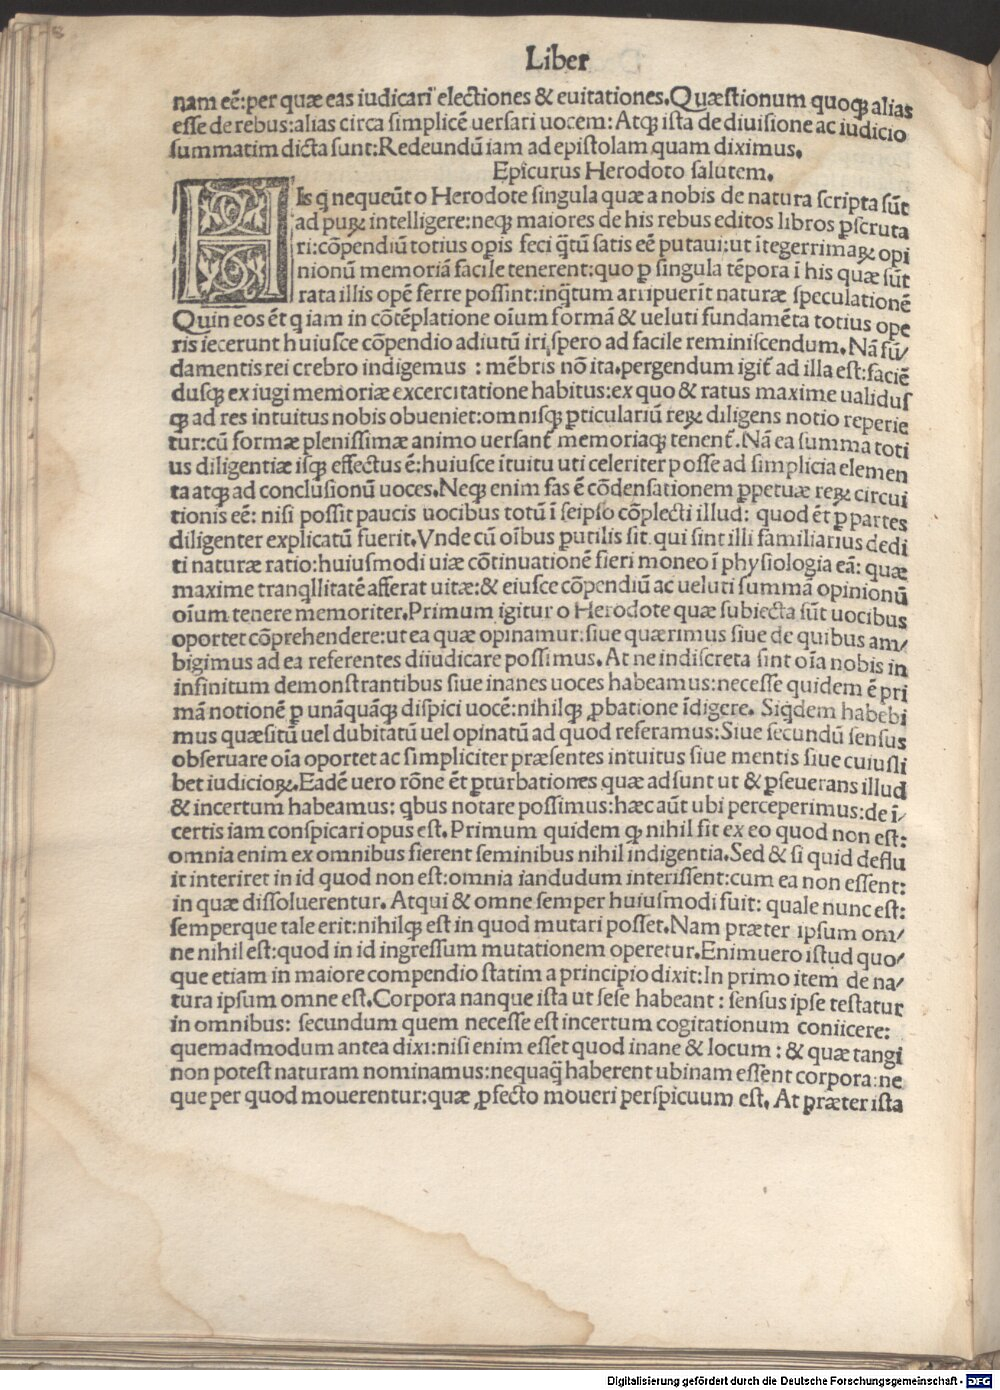 Liber
nam eē:per quæ eas iudicari electiones & euitationes.Quæstionum quoqꝫ alias
esse de rebus:alias circa simplicē uersari uocem: Atqꝫ ista de diuisione ac iudicio
summatim dicta sunt:Redeundū iam ad epistolam quam diximus.
Epicurus Herodoto salutem.
HIs q nequeūt o Herodote singula quæ a nobis de natura scripta sūt
ad puꝝ intelligere:neqꝫ maiores de his rebus editos libros ꝑscruta
ri:cōpendiū totius opis feci q̄tū satis eē putaui:ut ītegerrimaꝝ opi
nionū memoriā facile tenerent:quo ꝑ singula tēpora ī his quæ sūt
rata illis opē ferre possint:inq̄tum arripuerīt naturæ speculationē
Quin eos ēt q iam in cōtēplatione oīum formā & ueluti fundamēta totius ope
ris iecerunt huiusce cōpendio adiutū iri spero ad facile reminiscendum.Nā fū/
damentis rei crebro indigemus : mēbris nō ita.pergendum igit̄ ad illa est:faciē
dusqꝫ ex iugi memoriæ excercitatione habitus:ex quo & ratus maxime ualidus
qꝫ ad res intuitus nobis obueniet:omnisqꝫ ꝑticulariū reꝝ diligens notio reperie
tur:cū formæ plenissimæ animo uersant̄ memoriaqꝫ tenent̄.Nā ea summa toti
us diligentiæ isqꝫ effectus ē:huiusce ītuitu uti celeriter posse ad simplicia elemen
ta atqꝫ ad conclusionū uoces.Neqꝫ enim fas ē cōdensationem ꝑpetuæ reꝝ circui
tionis eē: nisi possit paucis uocibus totū ī seipso cōplecti illud: quod ēt ꝑ partes
diligenter explicatū fuerit.Vnde cū oībus ꝑutilis sit qui sint illi familiarius dedi
ti naturæ ratio:huiusmodi uiæ cōtinuationē fieri moneo ī physiologia eā: quæ
maxime tranqllitatē afferat uitæ:& eiusce cōpendiū ac ueluti summā opinionū
oīum tenere memoriter.Primum igitur o Herodote quæ subiecta sūt uocibus
oportet cōprehendere:ut ea quæ opinamur:siue quærimus siue de quibus am/
bigimus ad ea referentes diiudicare possimus.At ne indiscreta sint oīa nobis in
infinitum demonstrantibus siue inanes uoces habeamus:necesse quidem ē pri
mā notionē ꝑ unāquāqꝫ dispici uocē:nihilqꝫ ꝓbatione īdigere. Siq̄dem habebi
mus quæsitū uel dubitatū uel opinatū ad quod referamus:Siue secundū sensus
obseruare oīa oportet ac simpliciter præsentes intuitus siue mentis siue cuiusli
bet iudicioꝝ.Eadē uero rōne ēt ꝑturbationes quæ adsunt ut & ꝑseuerans illud
& incertum habeamus: qbus notare possimus:hæc aūt ubi perceperimus:de ī/
certis iam conspicari opus est.Primum quidem qꝫ nihil fit ex eo quod non est:
omnia enim ex omnibus fierent seminibus nihil indigentia.Sed & si quid deflu
it interiret in id quod non est:omnia iandudum interissent:cum ea non essent:
in quæ dissoluerentur. Atqui & omne semper huiusmodi fuit: quale nunc est:
semperque tale erit:nihilqꝫ est in quod mutari posset.Nam præter ipsum om/
ne nihil est:quod in id ingressum mutationem operetur.Enimuero istud quo/
que etiam in maiore compendio statim a principio dixit:In primo item de na/
tura ipsum omne est.Corpora nanque ista ut sese habeant : sensus ipse testatur
in omnibus: secundum quem necesse est incertum cogitationum coniicere:
quemadmodum antea dixi:nisi enim esset quod inane & locum : & quæ tangi
non potest naturam nominamus:nequaq̄ haberent ubinam essent corpora:ne
que per quod mouerentur:quæ ꝓfecto moueri perspicuum est. At præter ista
Digitalisierung gefördert durch die Deutsche Forschungsgemeinschaft - DFG